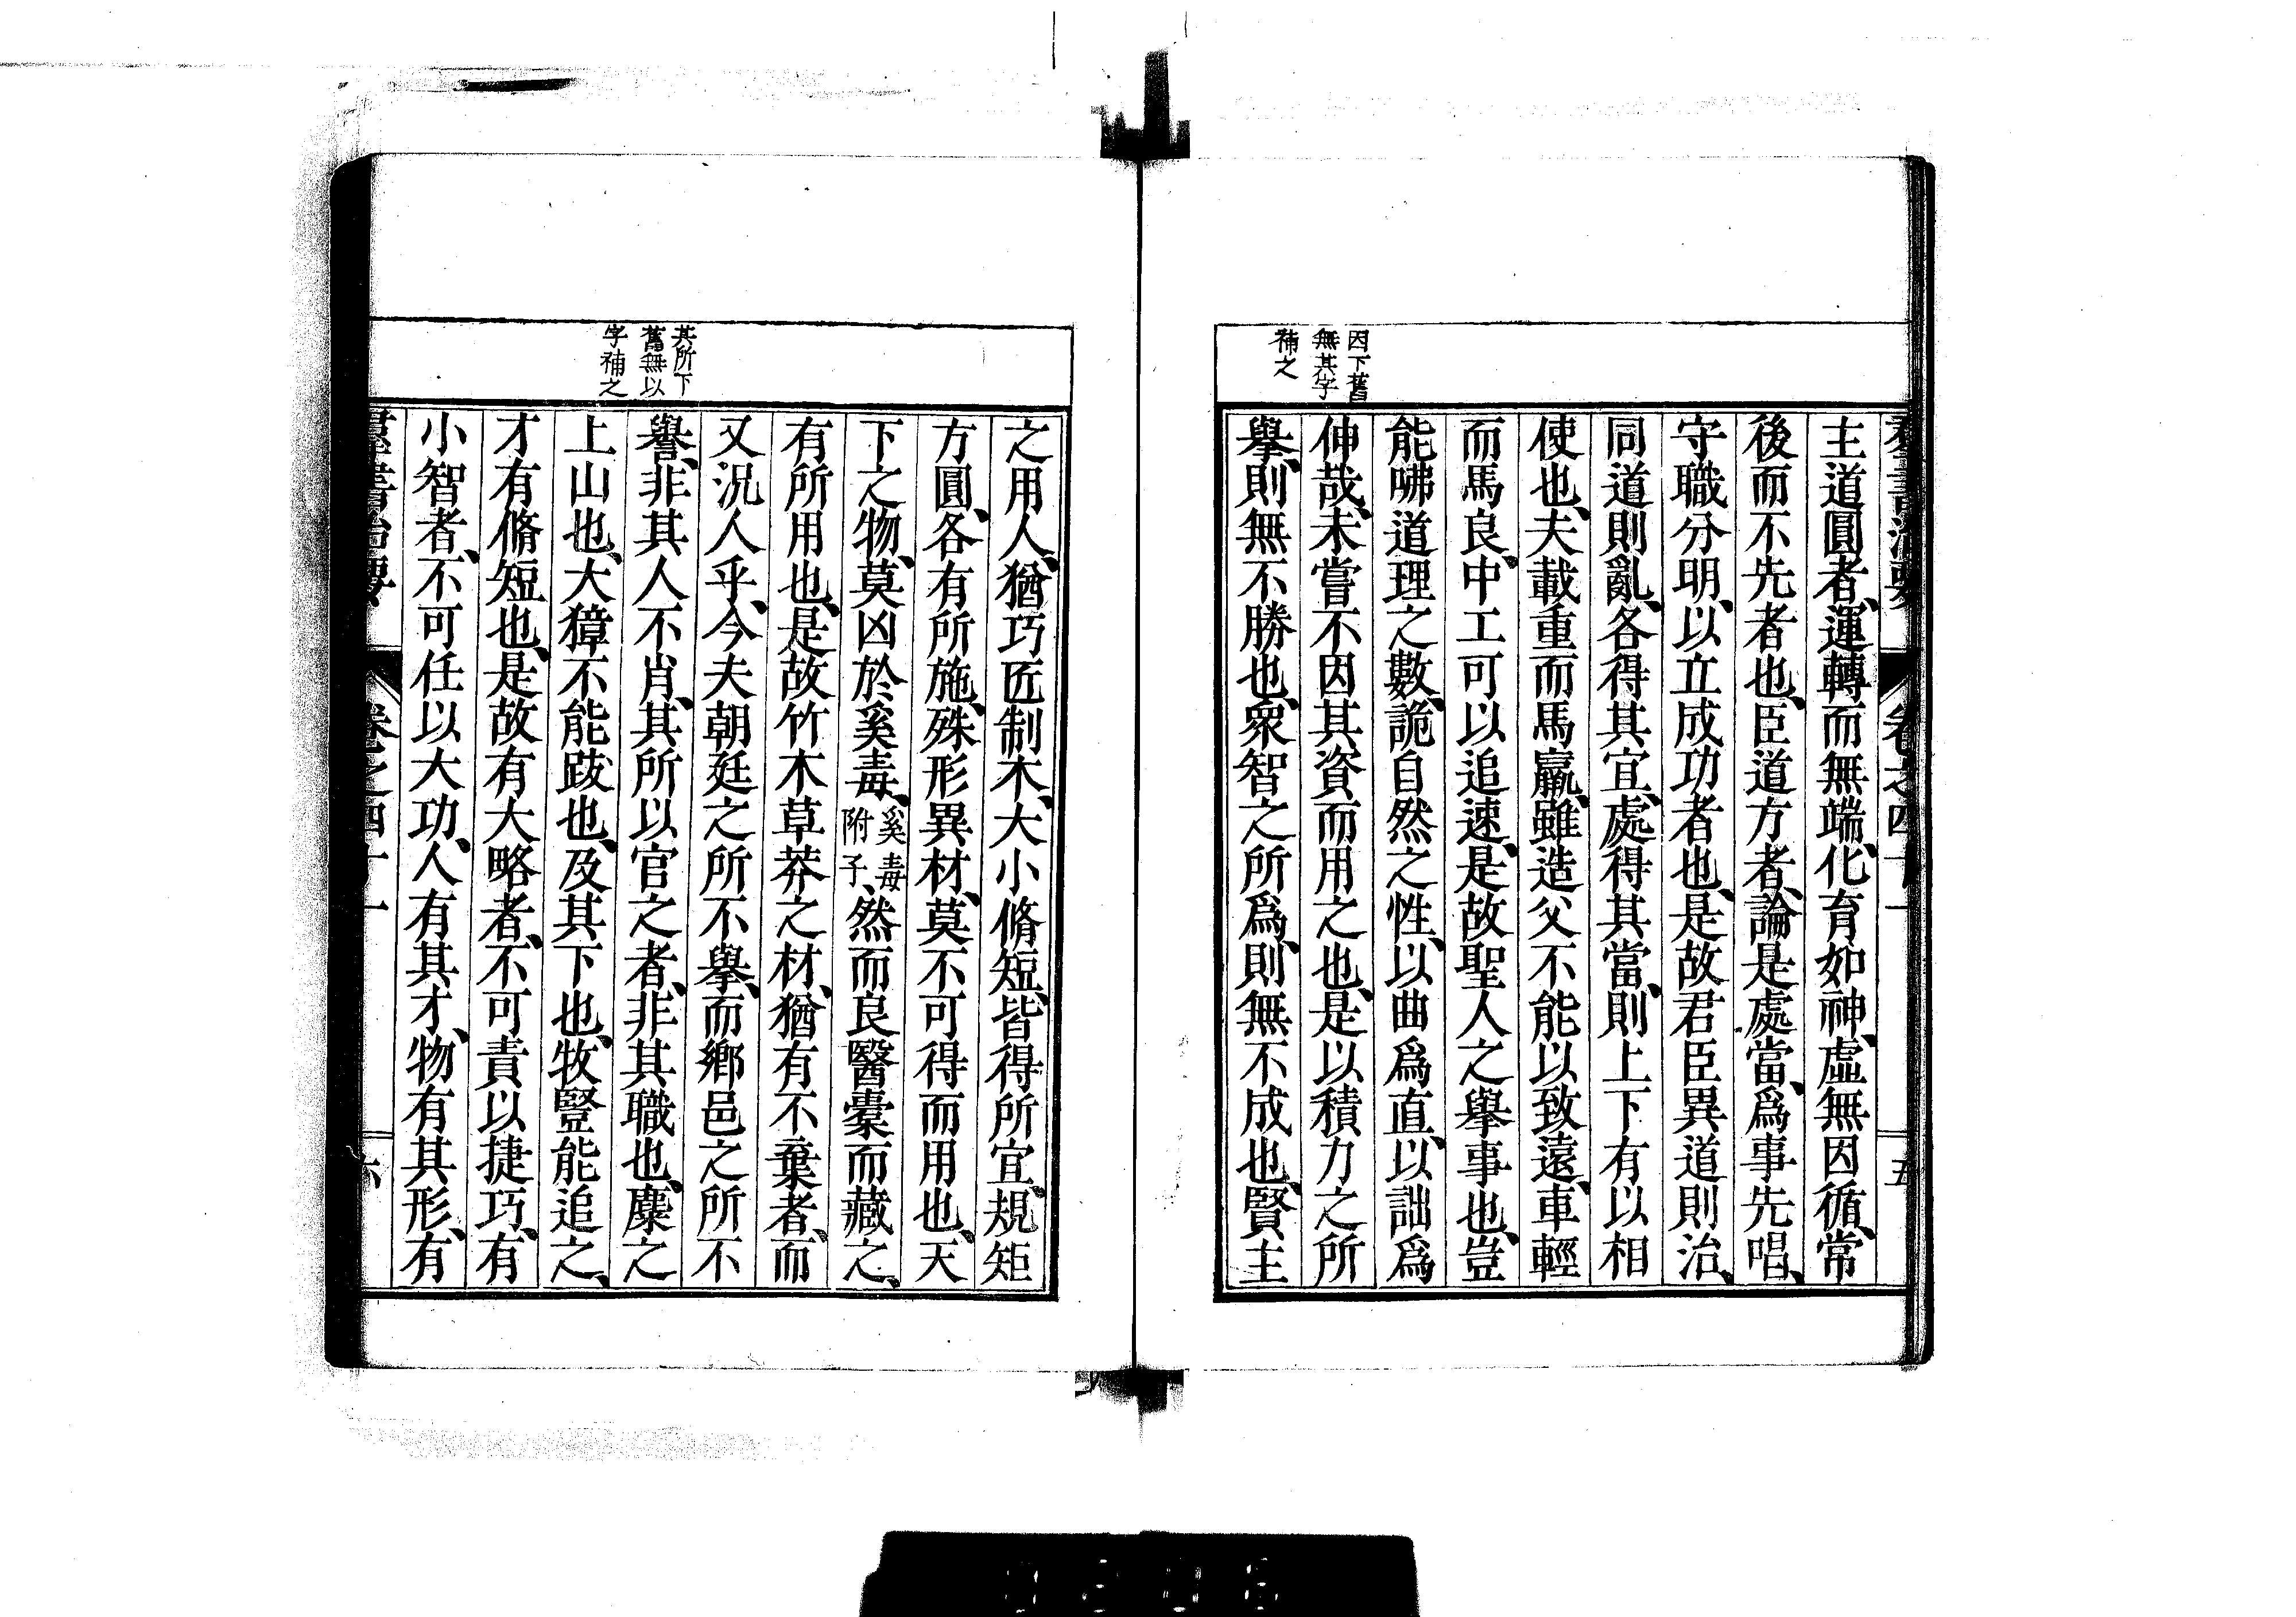 因下舊
無其字
補之
羣書治要 卷之四十一 五
主道圓者、運轉而無端、化育如神、虛無因循、常
後而不先者也、臣道方者、論是處當、爲事先唱、
守職分明、以立成功者也、是故君臣異道則治、
同道則亂、各得其宜、處得其當、則上下有以相
使也、夫載重而馬羸、雖造父不能以致遠、車輕
而馬良、中工可以追速、是故聖人之舉事也、豈
能咈道理之數、詭自然之性、以曲爲直、以詘爲
伸哉、未嘗不因其資而用之也、是以積力之所
舉、則無不勝也、衆智之所爲、則無不成也、賢主
其所下
舊無以
字補之
之用人、猶巧匠制木、大小脩短、皆得所宜、規矩
方圓、各有所施、殊形異材、莫不可得而用也、天
下之物、莫凶於奚毒、奚毒附子、然而良醫橐而藏之、
有所用也、是故竹木草莽之材、猶有不棄者、而
又況人乎、今夫朝廷之所不舉、而鄉邑之所不
譽、非其人不肖、其所以官之者、非其職也、麋之
上山也、大獐不能跂也、及其下也、牧豎能追之、
才有脩短也、是故有大略者、不可責以捷巧、有
小智者、不可任以大功、人有其才、物有其形、有
羣書治要 卷之四十一 六